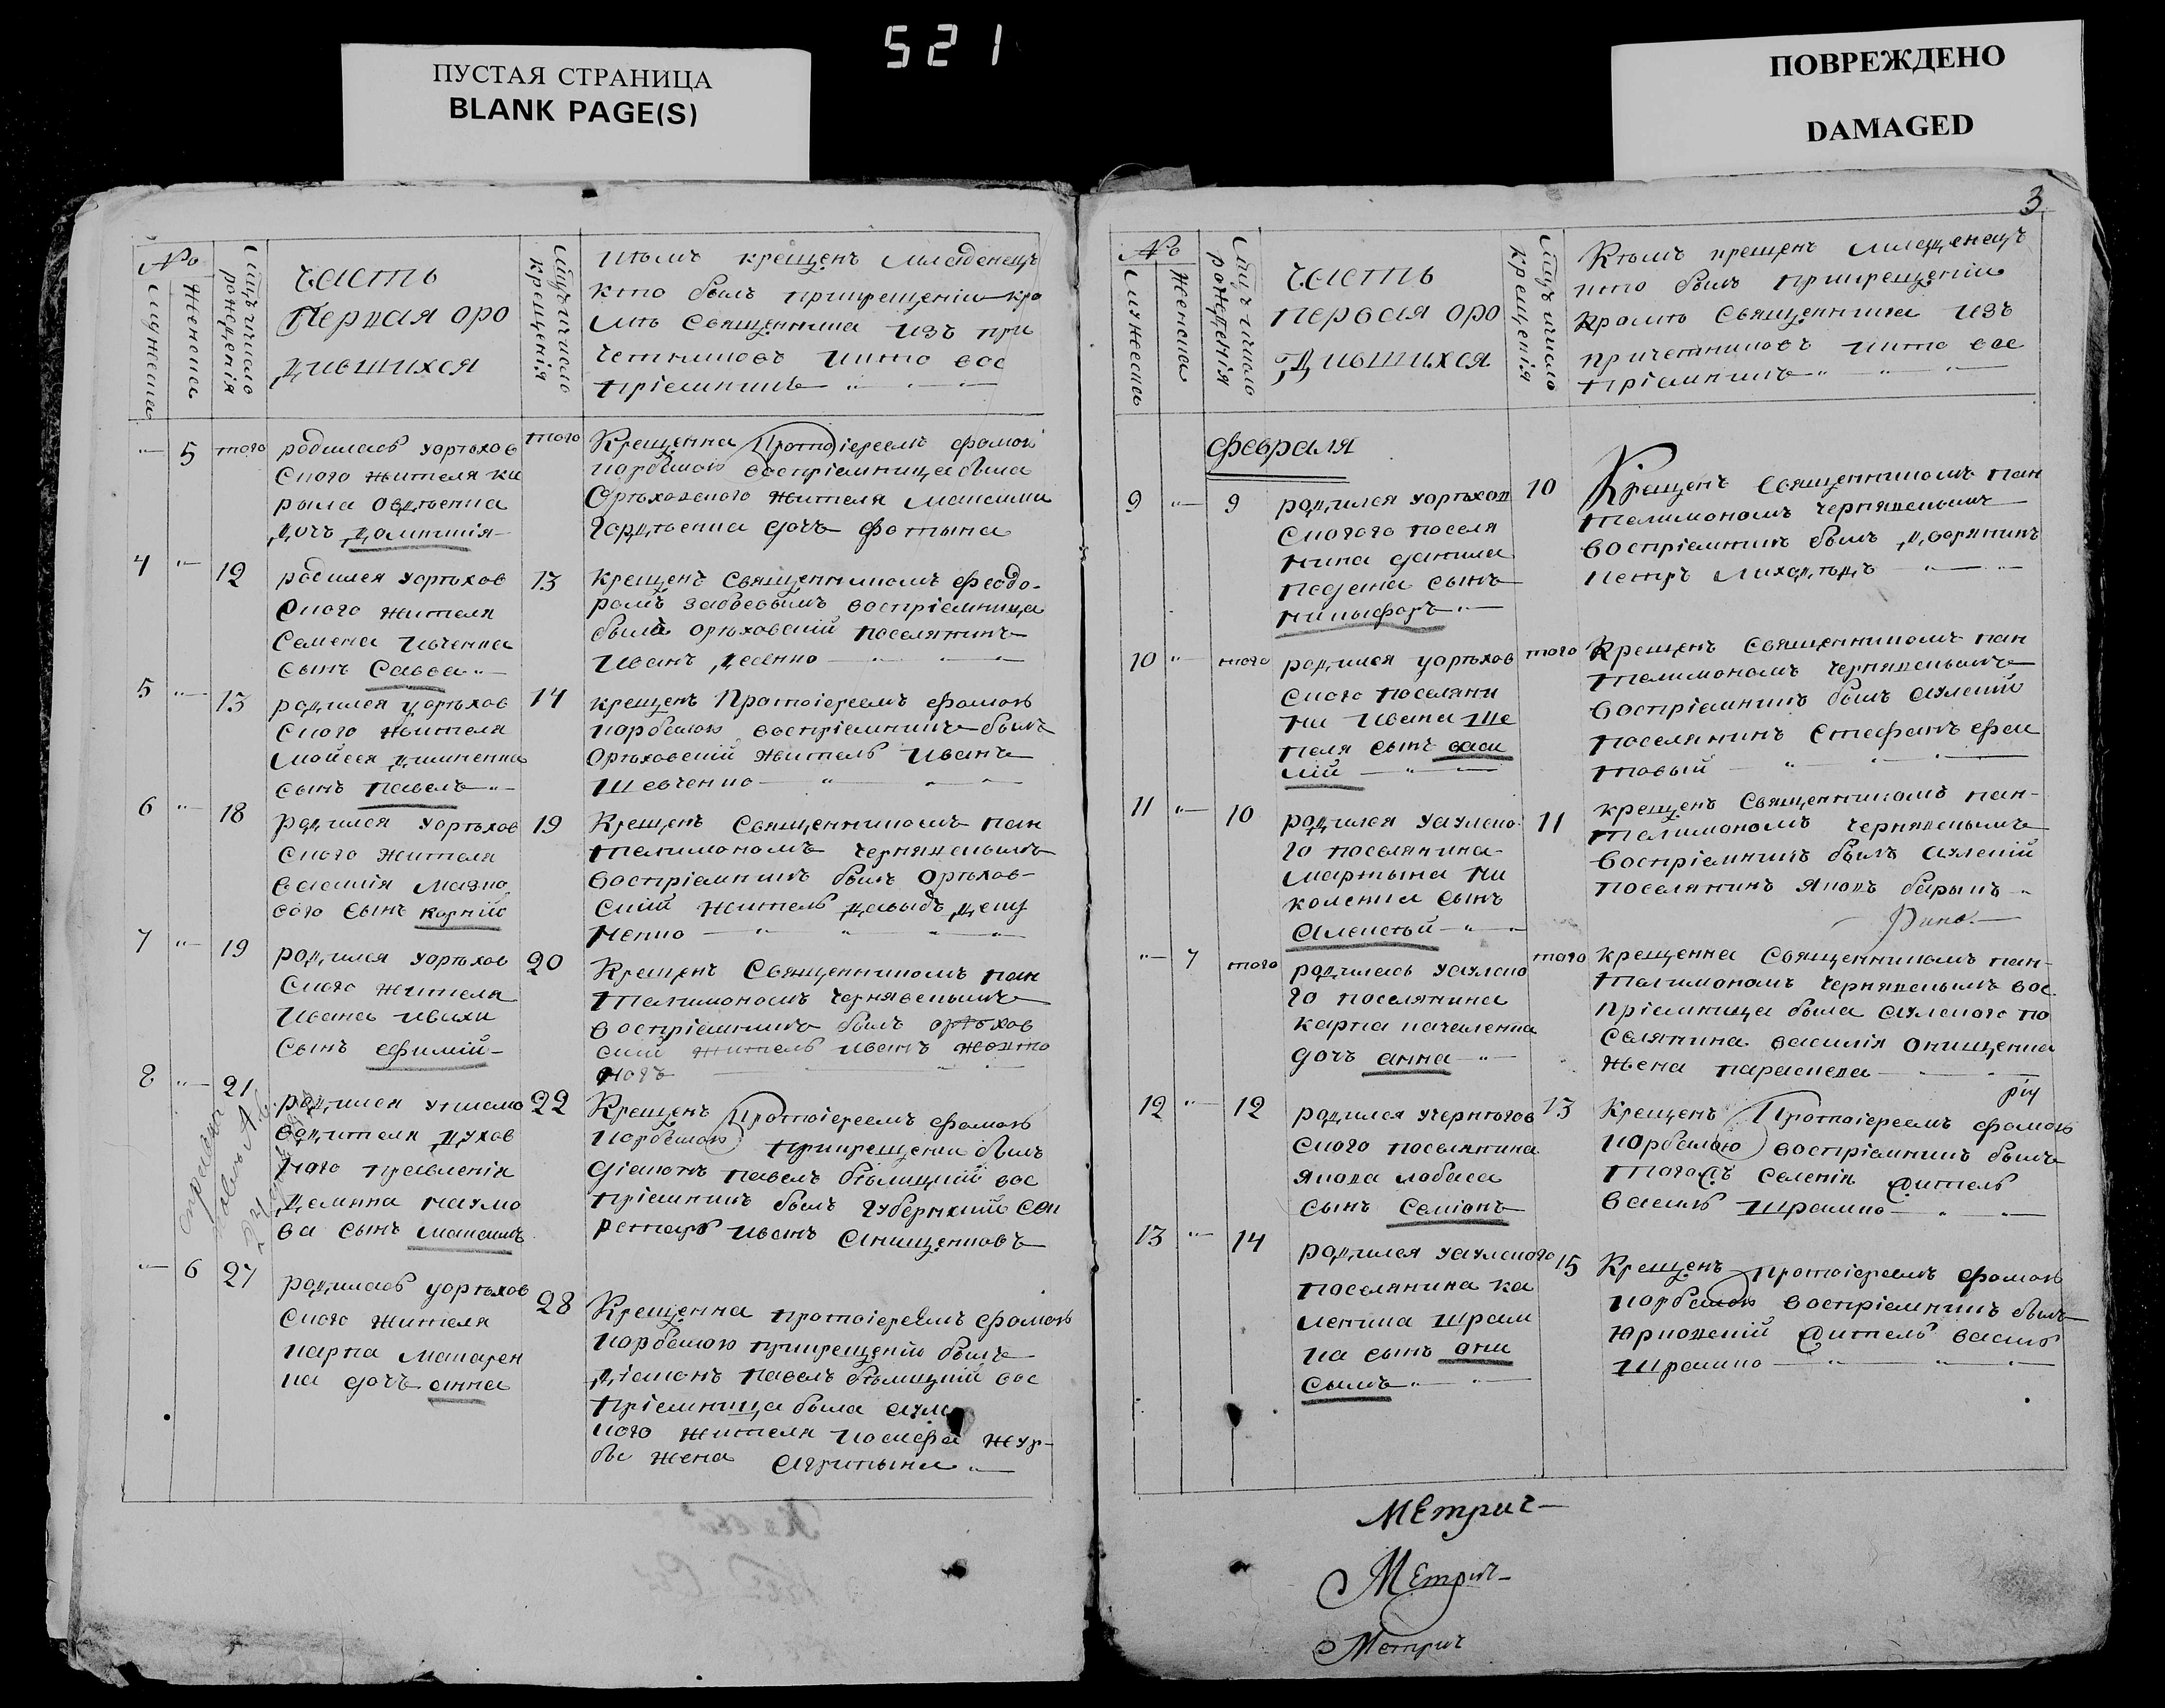 521
ПУСТАЯ СТРАНИЦА
BLANK PAGE(S)
ПОВРЕЖДЕНО
DAMAGED
№
мужеска
женска
мцъ число рожденія
часть
Первая оро
дившихся
мцъ число крещенія
кѣмъ крещенъ младенецъ
кто былъ прикрещеніи кро
мѣ Священника изъ при
четниковъ икто вос
пріемникъ
5 того
родилась уорѣхов
ского жителя ки
рыла Овдѣенка
дочь домникія
того
Крещенна Протоіереемъ фомою
корбскою воспріемницеа была
Орѣховского жителя максима
Гордѣенка дочь фотына
4 12
родился уорѣхов
ского жителя
Семена Ивченка
сынъ Савва
13
крещенъ Священникомъ феодо-
ромъ воспріемница
была орѣховскій поселянинъ
Иванъ
5 13
родился уорѣхов
ского жителя
мойсея
сынъ павелъ
14
крещенъ Протоіереемъ фомою
корбскою воспріемникъ былъ
Орѣховскій житель Иванъ
Шевченко
6 18
родился уорѣхов
ского жителя
василія мазно
вого сынъ корній
19
Крещенъ Священникомъ пан
телимономъ чернявскымъ
воспріемникъ былъ Орѣхов-
скій житель давыдъ деш
ненко
7 19
родился уорѣхов
ского жителя
Ивана Ивахи
Сынъ ефимій
20
Крещенъ Священникомъ пан
телимономъ чернявскымъ
воспріемникъ былъ орѣхов
скій житель иванъ жовто
ногъ
8 21
родился уписмо
водителя духов
ного правленія
демяна наумо
ва сынъ максимъ
22
Крещенъ Протоіереемъ фомою
корбскою прикрещении былъ
діаконъ павелъ бѣлицкий вос
пріемникъ былъ губернкий сек
ретарь иванъ Онищенковъ
6 27
родилась уорѣхов
ского жителя
карпа макарен
ка дочь анна
28
Крещенна протоіереемъ фомою
корбскою прикрещеніи былъ
діаконъ павелъ бѣлицкий вос
пріемница была аулс
кого жителя Іосифа жур-
бы жена Агрипына
3
№
мужеска
женска
мцъ число рожденія
часть
первая оро
дившихся
мцъ число крещенія
Кѣмъ крещенъ младенецъ
кто былъ прикрещеніи
кромѣ Священника изъ
причетниковъ икто вос
пріемникъ
февраля
9 9
родился уорѣхов
ского поселя
нина данила
педена сынъ
никыфоръ
10
Крещенъ Священникомъ пан
телимономъ чернявскымъ
воспріемникъ былъ дворянинъ
петръ лиходѣдъ
10 того
родился уорѣхов
ского поселяни
на Ивана ше
пеля сынъ васи
лій
того
Крещенъ Священникомъ пан
телимономъ чернявскымъ
воспріемникъ былъ аулский
поселянинъ Стефанъ
11 10
родился уаулско
го поселянина
мартына ни
коленка сынъ
алексѣй
11
крещенъ Священникомъ пан-
телимономъ чернявскымъ
воспріемникъ былъ аулскій
поселянинъ яковъ
7 того
родилась уаулско
го поселянина
карпа качаленка
дочь анна
того
крещенна Священникомъ пан-
телимономъ чернявскымъ вос
пріемница была аулского по
селянина василія Онищенка
жена параскева
12 12
родился учернѣгов
ского поселянина
якова лобаса
сынъ Семіонъ
13
Крещенъ Протоіереемъ фомою
корбскою воспріемникъ былъ
селенія житель
василь Шрамко
13 14
родился уаулского
поселянина ка
леника шрам
ка сынъ они
сымъ
15
Крещенъ протоіереемъ фомою
корбскою воспріемникъ былъ
житель василь
Шрамко
Метрич
Метрич
Метрич